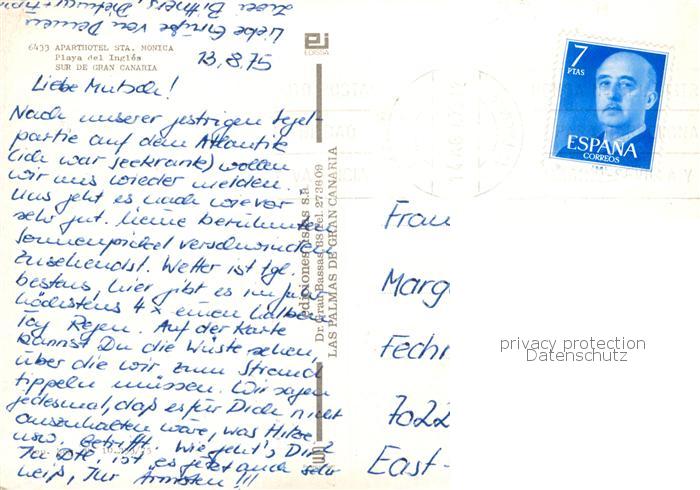 Liebe Grüße von Deinen
6433 APARTHOTEL STA. MONICA
Playa del Inglés
SUR DE GRAN CANARIA
13.8.75
Liebe Mutsch!
Nach unserer gestrigen Segel-
partie auf dem Atlantik
(ich war seekrank) wollen
wir uns wieder melden.
Uns geht es nach wie vor
sehr gut. Meine berühmten
Sonnenpickel verschwinden
zusehendst. Wetter ist tgl.
bestens, hier gibt es im Jahr
höchstens 4 x einen halben
Tag Regen. Auf der Karte
kannst Du die Wüste sehen,
über die wir zum Strand
tippeln müssen. Wir sagen
jedesmal, daß es für Dich nicht
auszuhalten wäre, was Hitze
usw. betrifft. Wie geht's Dir?
ist es jetzt auch sehr
heiß, Ihr Ärmsten!!!
EDISSA
ediciones islas s.a.
Dr. Grau Bassas, 38 Tel. 273609
LAS PALMAS DE GRAN CANARIA
7
PTAS
ESPAÑA
CORREOS
Frau
Marg
Fechn
7022
East-
privacy protection
Datenschutz